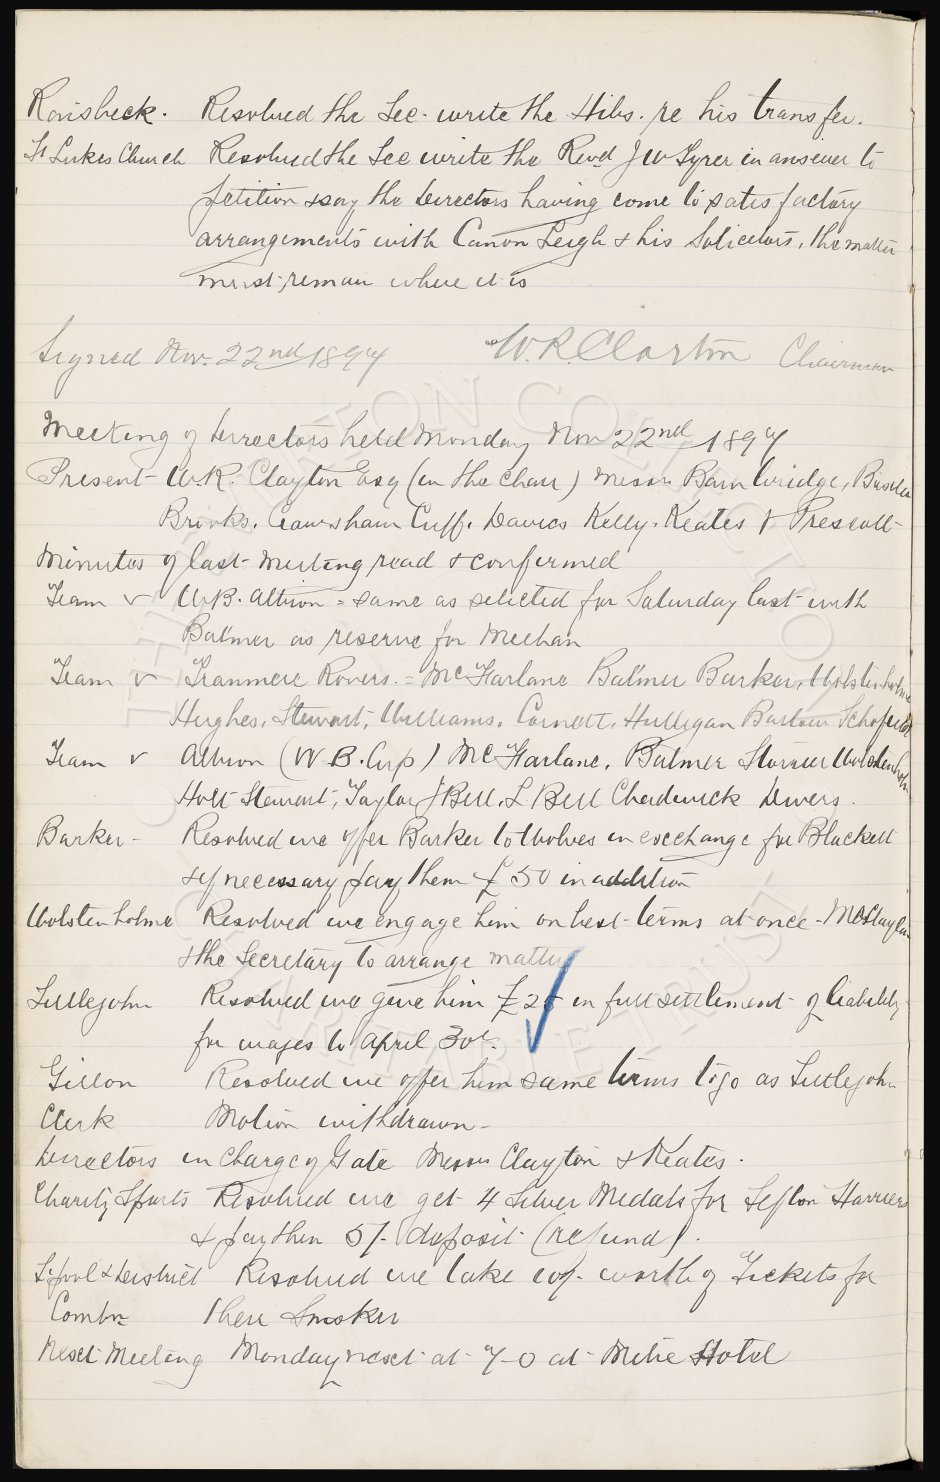 Ronisbeck. Resolved the Sec. write the Hibs. re his transfer.
St Lukes Church Resolved the Sec write the Revd J W Tyrer in answer to
petition & say the Directors having come to satisfactory
arrangements with Canon Leigh & his Solicitors, the matter
must remain where it is
Signed Nov. 22nd 1897 W. R. Clayton Chairman
Meeting of Directors held Monday Nov 22nd 1897
Present - W.R. Clayton Esq (in the Chair) Messrs Bainbridge,
Brooks, Coursham Cuff. Davies Kelly. Keates & Prescott
Minutes of last meeting read & confirmed
Team v W.B. Albion = same as selected for Saturday last with
Balmer as reserve for Meehan
Team v Tranmere Rovers. = McFarlane Balmer Barker, Wolstenholme
Hughes, Stewart, Williams, Cornett, Hulligan Barlow Schofield
Team v Albion (W B. Cup) McFarlane, Balmer Storrier Wolstenholm
Holt Stewart, Taylor J Bell, L Bell Chadwick Divers.
Barker - Resolved we offer Barker to Wolves in exchange for Blackett
& if necessary pay them £50 in addition
Wolstenholme Resolved we engage him on best terms at once - Mr Clayton
& the Secretary to arrange matter
Littlejohn Resolved we give him £25 in full settlement of liability
for wages to April 30th.
Gillon Resolved we offer him same terms to go as Littlejohn
Clerk Motion withdrawn -
Directors in charge of Gate Messrs Clayton & Keates.
Charity Sports Resolved we get 4 Silver Medals for Sefton Harriers
& pay then 5/- deposit (refund).
L'pool & District Resolved we take 10/- worth of Tickets for
Combn their Smoker
Next Meeting Monday next at 7-0 at Mitre Hotel